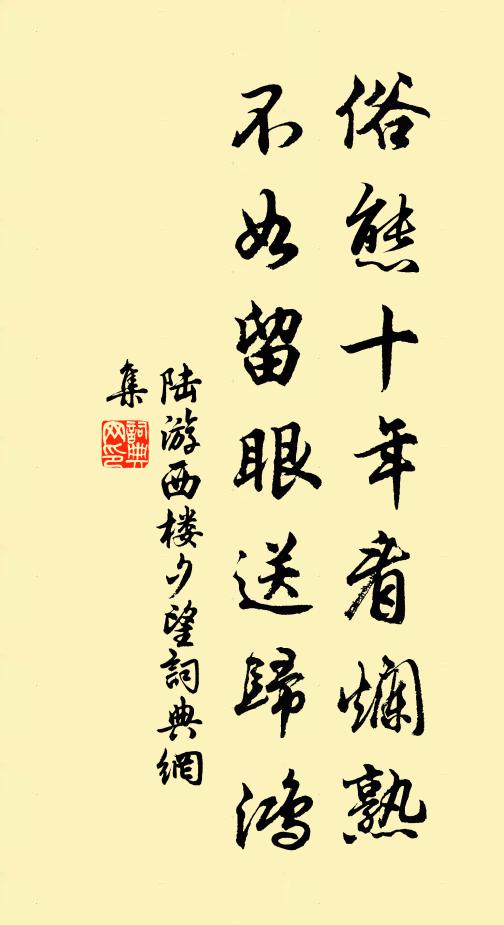 俗態十年看爛熟
不如留眼送歸鴻
陆游西楼夕望詞典網
集
詞典
网印